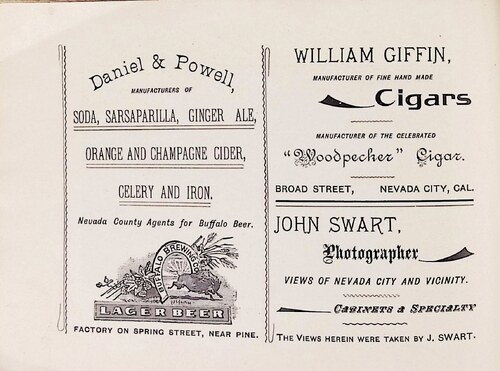 Daniel & Powell,
MANUFACTURERS OF
SODA, SARSAPARILLA, GINGER ALE,
ORANGE AND CHAMPAGNE CIDER,
CELERY AND IRON.
Nevada County Agents for Buffalo Beer.
BUFFALO BREWING CO.
LAGER BEER
FACTORY ON SPRING STREET, NEAR PINE.
WILLIAM GIFFIN,
MANUFACTURER OF FINE HAND MADE
Cigars
MANUFACTURER OF THE CELEBRATED
"Woodpecker" Cigar.
BROAD STREET, NEVADA CITY, CAL.
JOHN SWART,
Photographer
VIEWS OF NEVADA CITY AND VICINITY.
CABINETS A SPECIALTY
THE VIEWS HEREIN WERE TAKEN BY J. SWART.